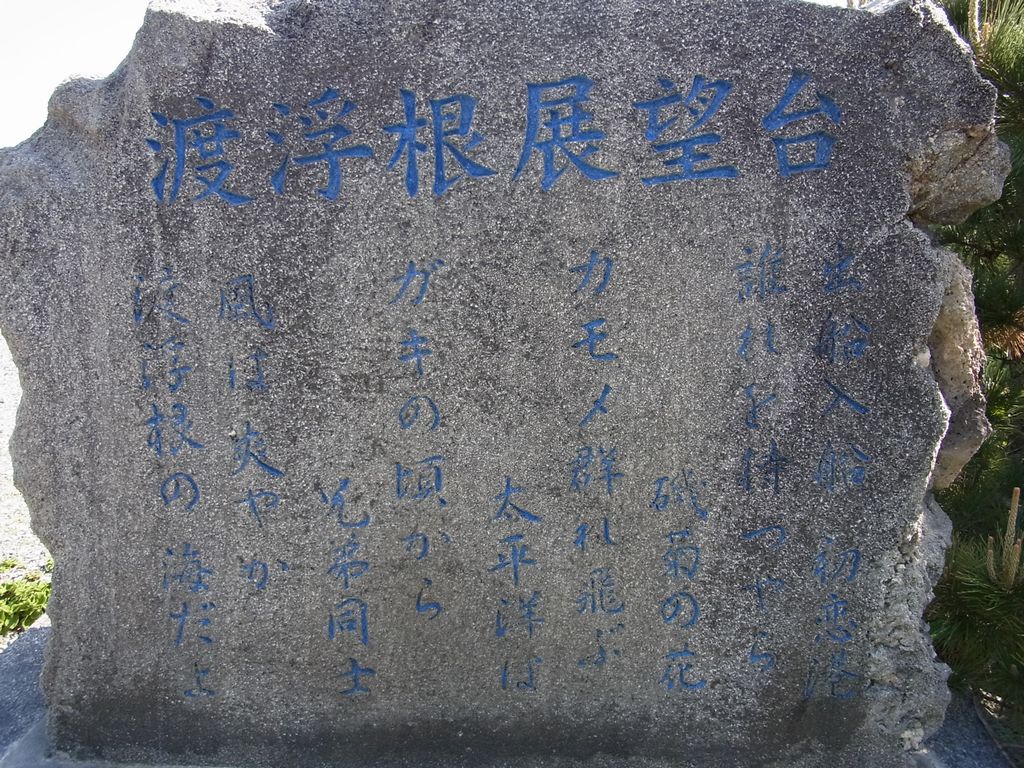 渡浮根展望台
出船入船 初恋港
誰れを待つやら
磯菊の花
カモメ群れ飛ぶ
太平洋は
ガキの頃から
兄弟同士
風は爽やか
渡浮根の 海だよ